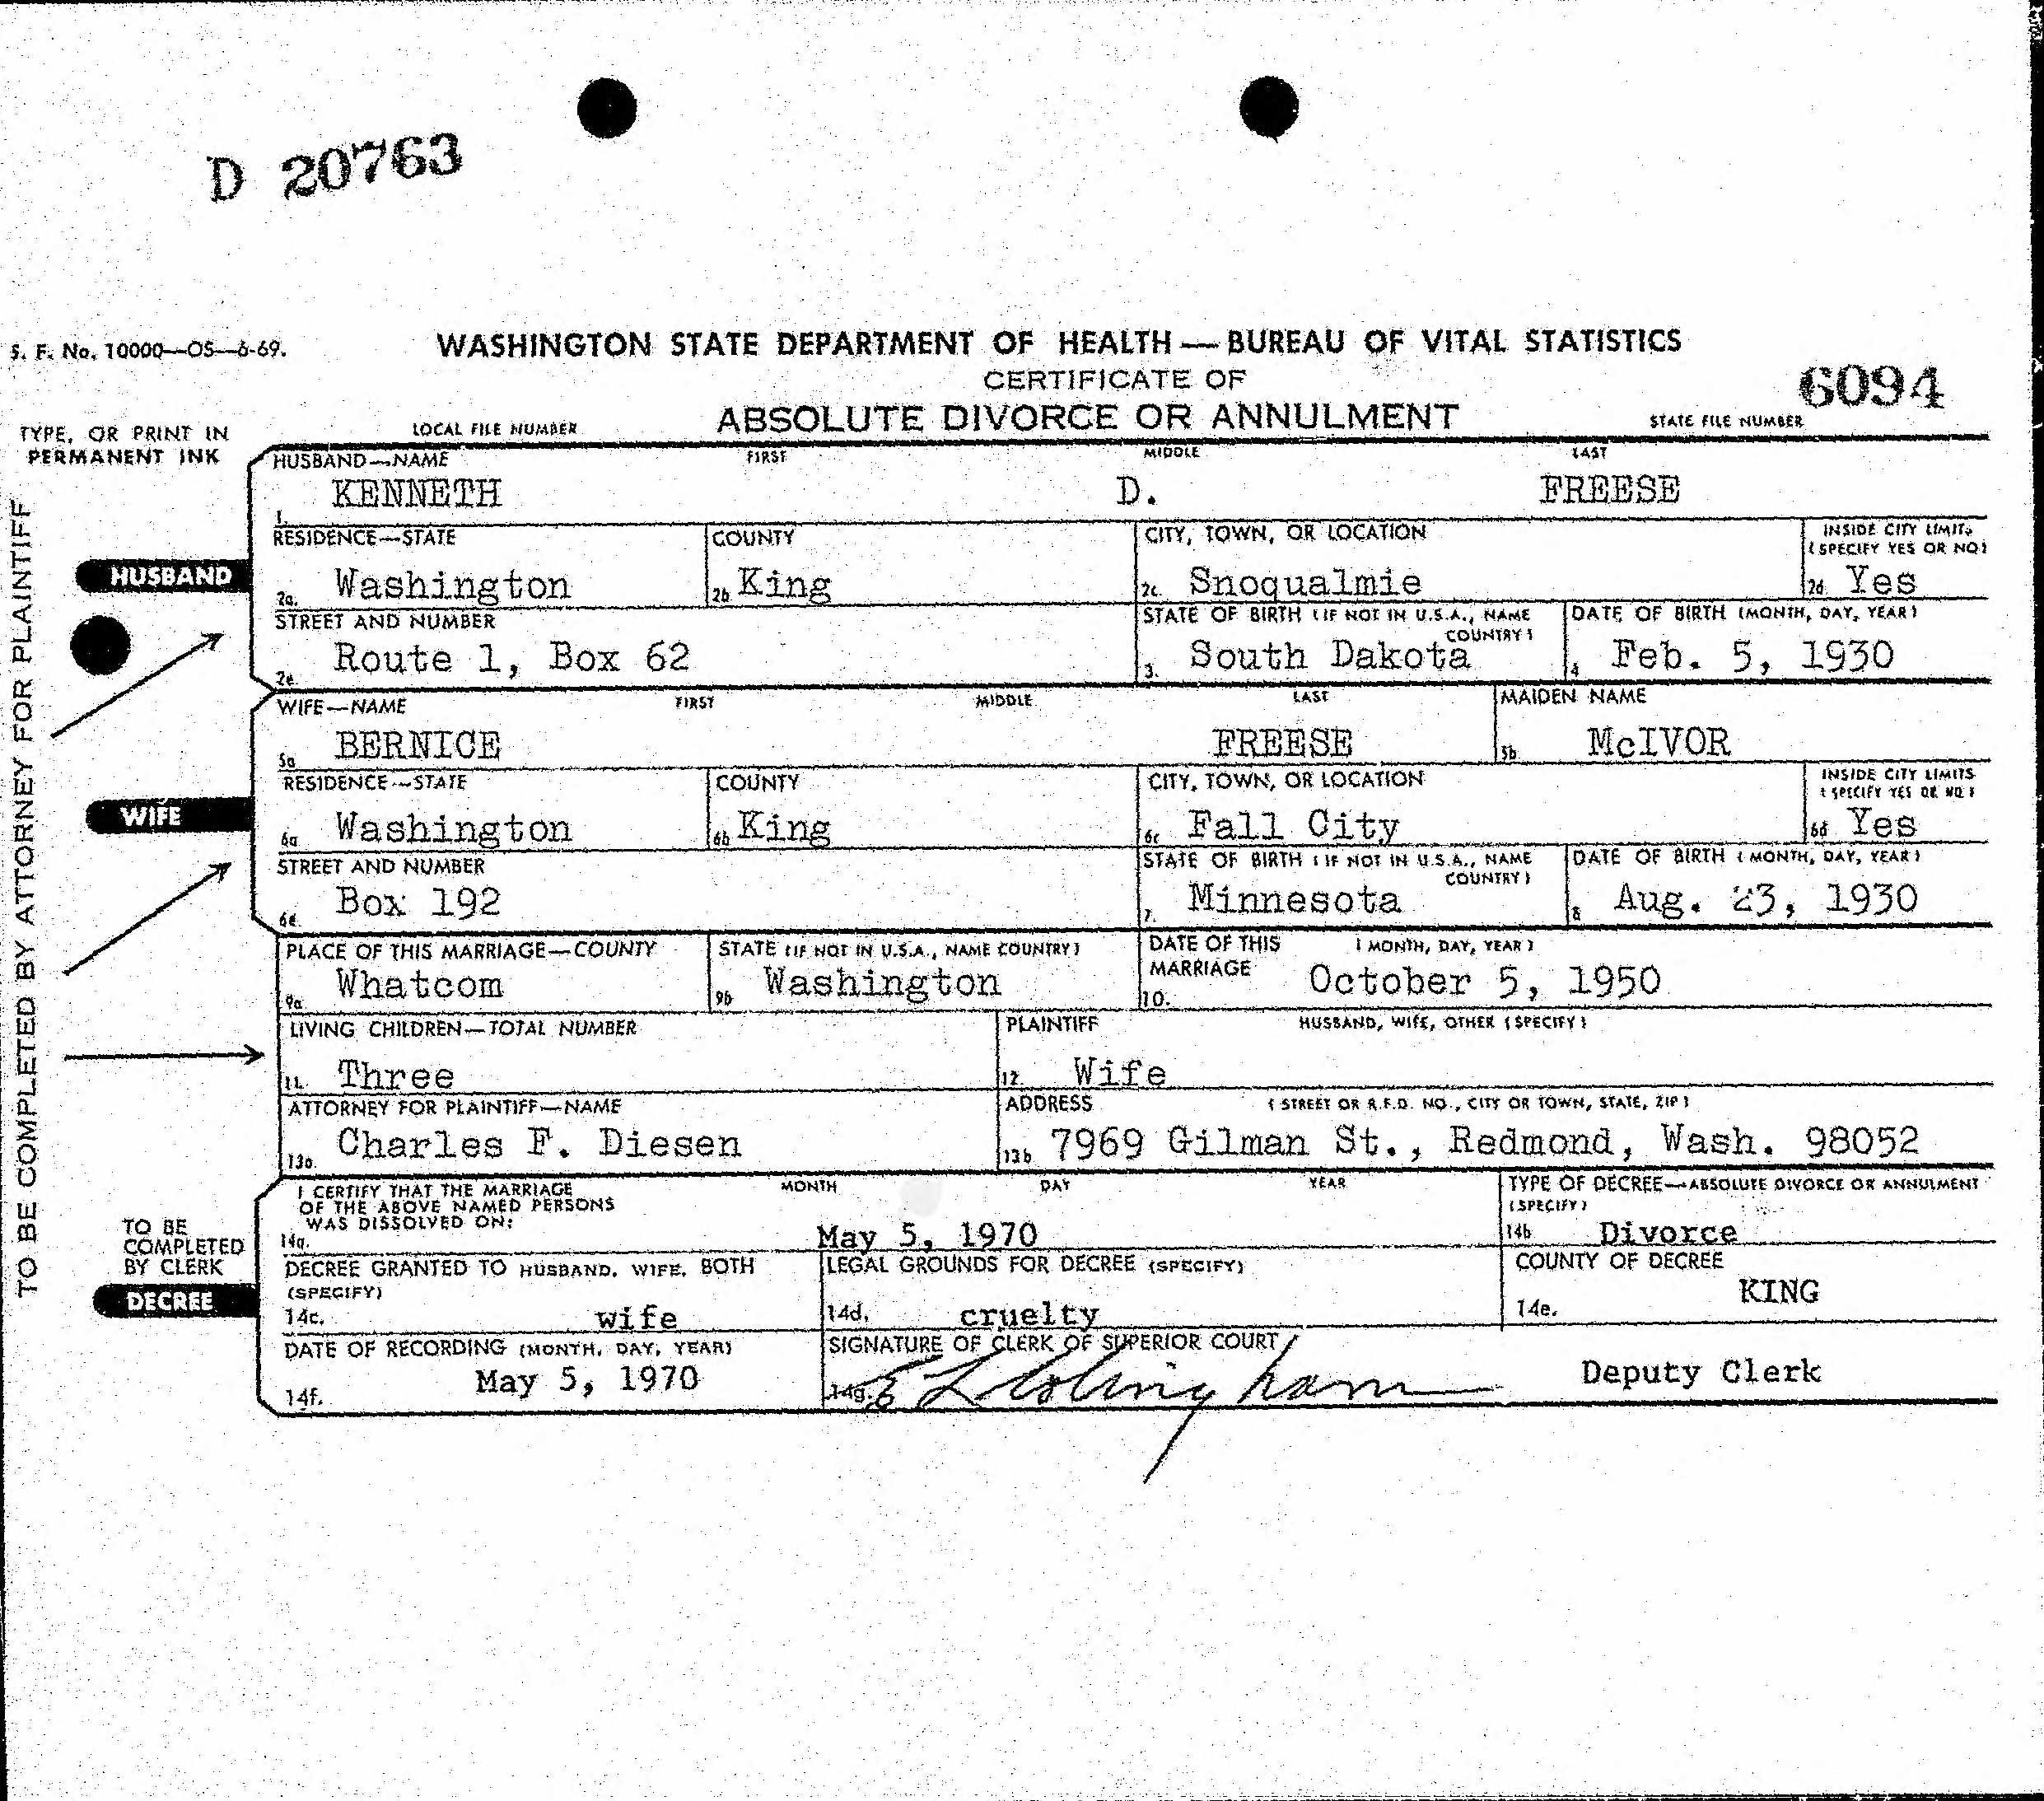 D 20763
S. F. No. 10000—OS—6-69.
WASHINGTON STATE DEPARTMENT OF HEALTH — BUREAU OF VITAL STATISTICS
CERTIFICATE OF
6094
ABSOLUTE DIVORCE OR ANNULMENT
LOCAL FILE NUMBER
STATE FILE NUMBER
TYPE, OR PRINT IN
PERMANENT INK
TO BE COMPLETED BY ATTORNEY FOR PLAINTIFF
HUSBAND—NAME FIRST MIDDLE LAST
1. KENNETH D. FREESE
HUSBAND
RESIDENCE—STATE COUNTY CITY, TOWN, OR LOCATION INSIDE CITY LIMITS
(SPECIFY YES OR NO)
2a. Washington 2b. King 2c. Snoqualmie 2d. Yes
STREET AND NUMBER STATE OF BIRTH (IF NOT IN U.S.A., NAME COUNTRY) DATE OF BIRTH (MONTH, DAY, YEAR)
2e. Route 1, Box 62 3. South Dakota 4. Feb. 5, 1930
WIFE—NAME FIRST MIDDLE LAST MAIDEN NAME
5a. BERNICE FREESE 5b. McIVOR
WIFE
RESIDENCE—STATE COUNTY CITY, TOWN, OR LOCATION INSIDE CITY LIMITS
(SPECIFY YES OR NO)
6a. Washington 6b. King 6c. Fall City 6d. Yes
STREET AND NUMBER STATE OF BIRTH (IF NOT IN U.S.A., NAME COUNTRY) DATE OF BIRTH (MONTH, DAY, YEAR)
6e. Box 192 7. Minnesota 8. Aug. 23, 1930
PLACE OF THIS MARRIAGE—COUNTY STATE (IF NOT IN U.S.A., NAME COUNTRY) DATE OF THIS MARRIAGE (MONTH, DAY, YEAR)
9a. Whatcom 9b. Washington 10. October 5, 1950
LIVING CHILDREN—TOTAL NUMBER PLAINTIFF HUSBAND, WIFE, OTHER (SPECIFY)
11. Three 12. Wife
ATTORNEY FOR PLAINTIFF—NAME ADDRESS (STREET OR R.F.D. NO., CITY OR TOWN, STATE, ZIP)
13a. Charles F. Diesen 13b. 7969 Gilman St., Redmond, Wash. 98052
TO BE
COMPLETED
BY CLERK
DECREE
I CERTIFY THAT THE MARRIAGE
OF THE ABOVE NAMED PERSONS
WAS DISSOLVED ON:
MONTH DAY YEAR
TYPE OF DECREE—ABSOLUTE DIVORCE OR ANNULMENT
(SPECIFY)
14a. May 5, 1970 14b. Divorce
DECREE GRANTED TO HUSBAND, WIFE, BOTH
(SPECIFY)
LEGAL GROUNDS FOR DECREE (SPECIFY) COUNTY OF DECREE
14c. wife 14d. cruelty 14e. KING
DATE OF RECORDING (MONTH, DAY, YEAR) SIGNATURE OF CLERK OF SUPERIOR COURT
14f. May 5, 1970 14g. Deputy Clerk